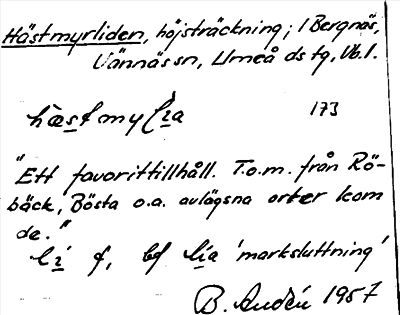 Hästmyrliden, höjsträckning; i Bergnäs,
Vännäs sn, Umeå ds tg, Vb.l.
hæstmy lịa 173
"Ett favorittillhåll. T.o.m. från Rö-
bäck, Bösta o.a. avlägsna orter kom
de."
li f, bf lia 'marksluttning'
B. 1957